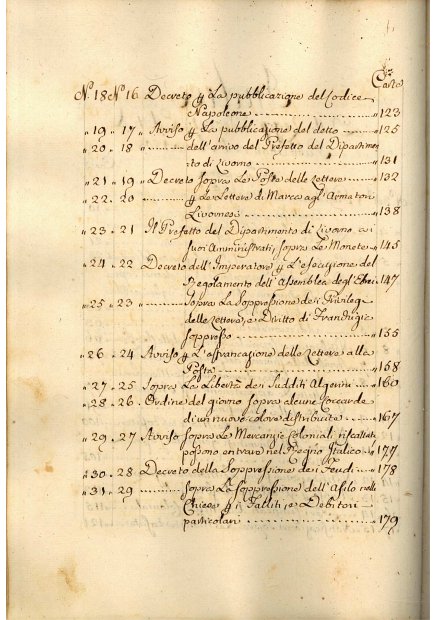 Carte
N. 18 N. 16 Decreto p La pubblicazione del Codice
Napoleone ........ " 123
" 19 " 17 " Avviso p La pubblicazione del detto ........ " 125
" 20 " 18 " ........ dell'arrivo del Prefetto del Dipartimen
to di Livorno ........ " 131
" 21 " 19 " Decreto sopra Le Poste delle Lettere ........ " 132
" 22 " 20 ........ p Le Lettere di Marco agl'Armatori
Livornesi ........ " 138
" 23 " 21 Il Prefetto del Dipartimento di Livorno ai
suoi Amministrati, sopra Le Monete " 145
" 24 " 22 Decreto dell'Imperatore p L'esecuzione del
Regolamento dell'Assemblea degl'Ebrei " 147
" 25 " 23 ........ sopra La Soppressione dei Privilegi
delle Lettere, e Diritto di Franchigie
soppresso ........ " 155
" 26 " 24 Avviso p L'affrancazione delle Lettere alla
Posta ........ " 158
" 27 " 25 Sopra La Libertà dei Sudditi Algerini " 160
" 28 " 26 Ordine del giorno sopra alcune Coccarde
di un nuovo colore distribuite " 167
" 29 " 27 Avviso sopra Le Mercanzie Coloniali, riscattate
possono entrare nel Regno Italico " 177
" 30 " 28 Decreto della Soppressione dei Feudi " 178
" 31 " 29 ........ sopra La Soppressione dell'Asilo nelle
Chiese p i Falliti, e Debitori
particolari ........ " 179